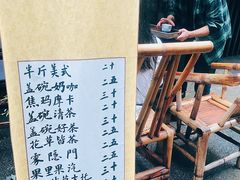 半斤美式 二十
盖碗奶咖 二五
焦玛摩卡 三十
盖碗清茶 二十
盖碗好茶 三十
花草皆茶 二五
家隐門 二五
果里果汽 二五